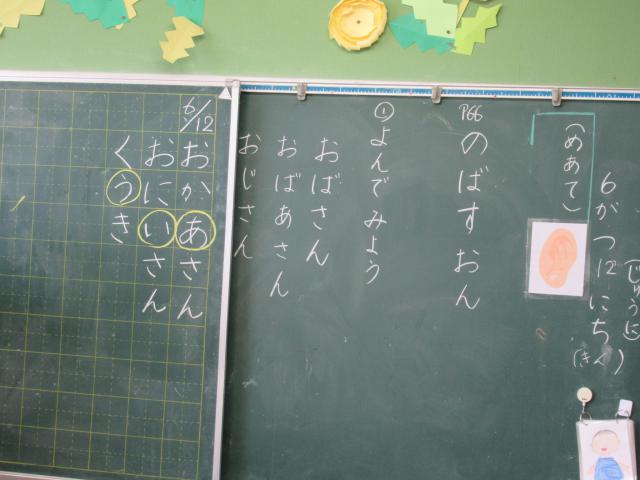 6がつ12にち(きん)
(じゅうに)
(めあて)
P66
のばすおん
①よんでみよう
おばさん
おばあさん
おじさん
6/12
おかあさん
おにいさん
くうき